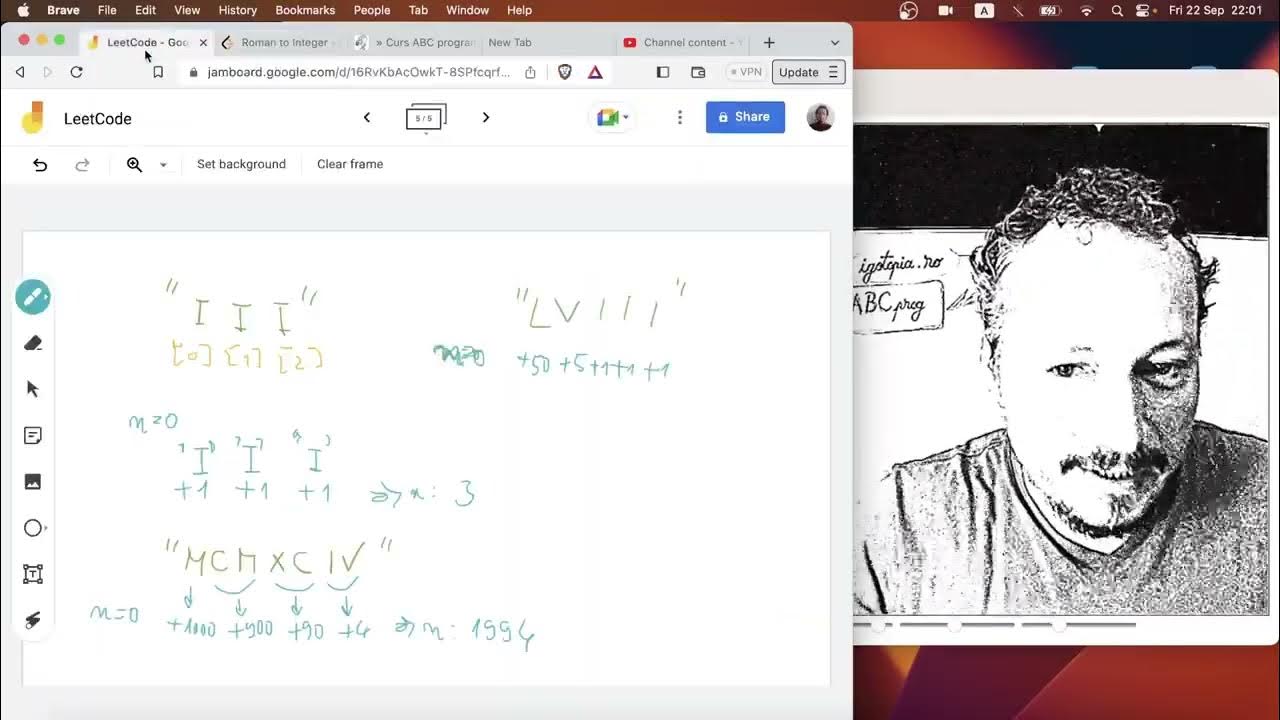 Brave File Edit View History Bookmarks People Tab Window Help A Fri 22 Sep 22:01
LeetCode - Goo Roman to Integer » Curs ABC program New Tab Channel content - Y
jamboard.google.com/d/16RvKbAcOwkT-8SPfcqrf... VPN Update
LeetCode 5 / 5 Share
Set background Clear frame
"I I I" "LVIII"
[0] [1] [2] +50 +5+1+1+1
n=0
'I' 'I' 'I'
+1 +1 +1 => n: 3
"MCMXCIV"
n=0 +1000 +900 +90 +4 => n: 1994
igotopia.ro
ABCprog